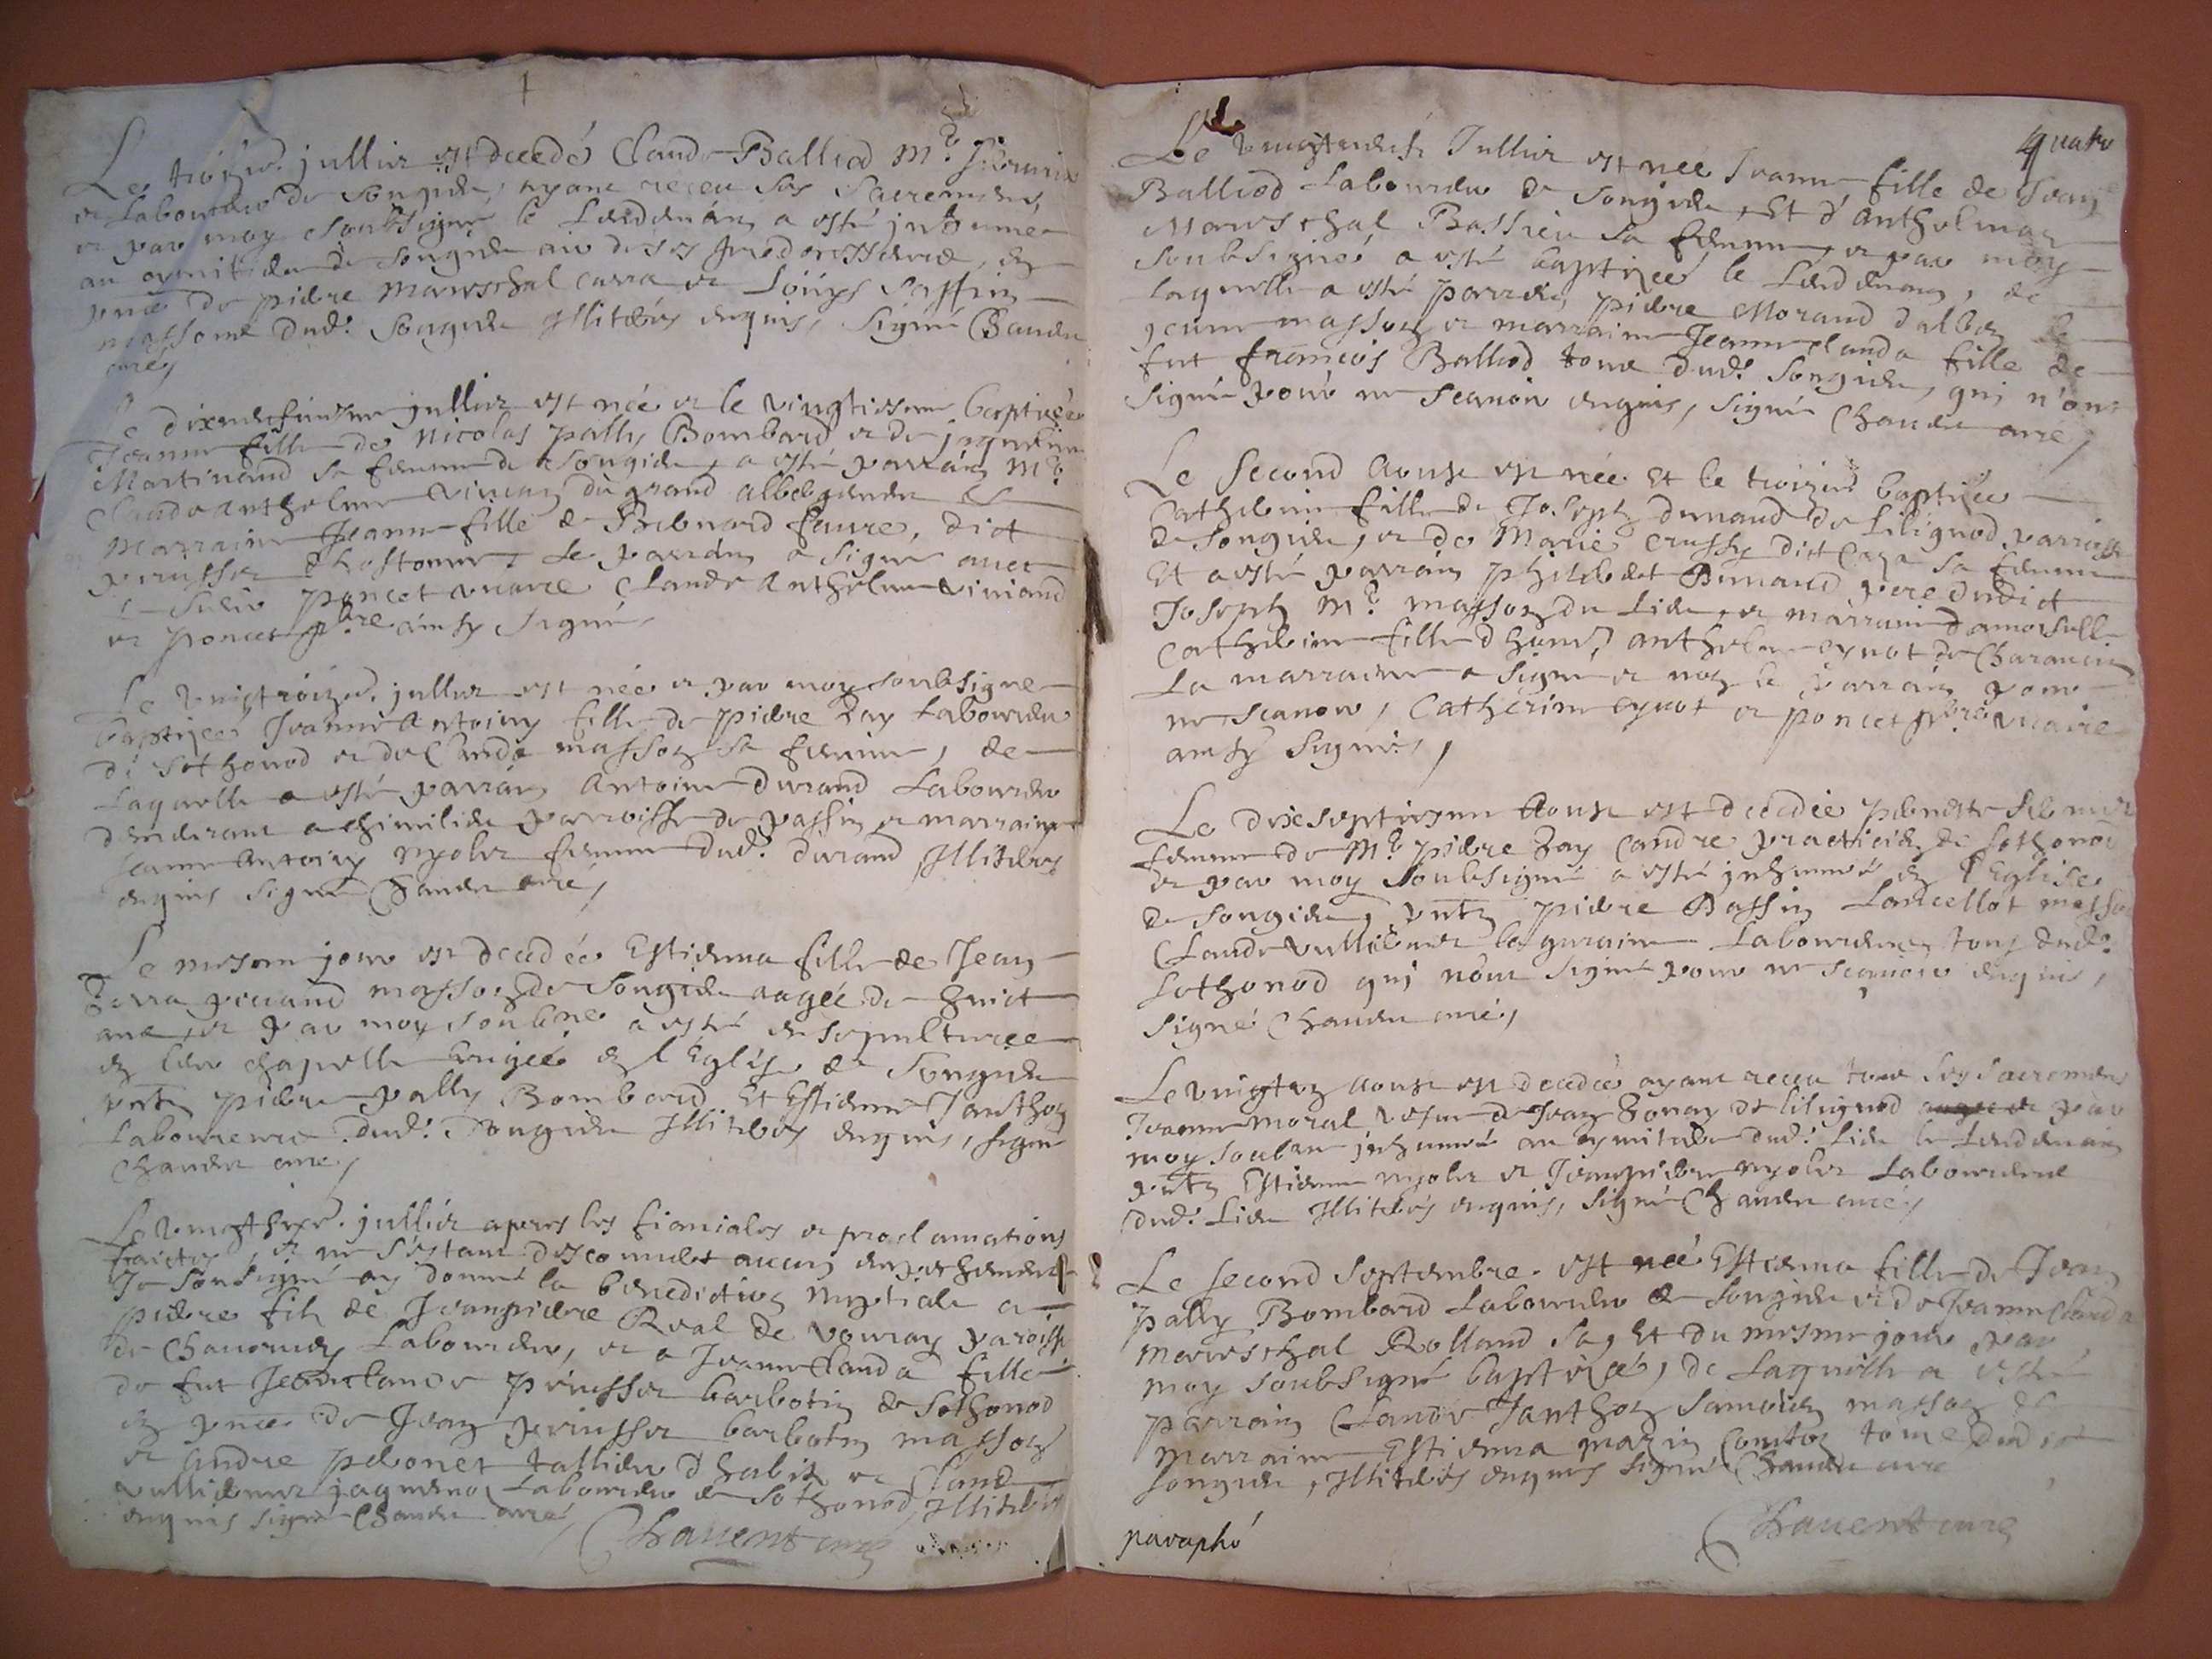 Le troisie. jullier est decedé Claude Balliod M.e
et laboureur de Songieu, ayant receu ses Sacremens,
et par moy soubsigné le lendemain a esté inhumé
au cymitiere de Songieu au de ses predecesseurs, en
pnce de pierre mareschal carra et Louys
massons dud. Songieu Illiterés enquis, signé Chauen
curé,
Le dixneufuiesme jullier est née et le vingtiesme baptizée
Jeanne fille de Nicolas pally Bombard et de jaqueline
Martinand sa femme de Songieu, a esté parrain M.e
Claude Anthelme viuian du grand Albergement
Marraine Jeanne fille de Bernard faure, dict
d'hostonne, Le parrain a signé auec
le Sieur poncet vicaire Claude Anthelme viniand
et poncet pbre ainsy signés
Le vingttroizie. jullier est née et par moy soubsigné
baptizée Jeanne Antoiny fille de pierre Zay laboureur
de Sothonod et de Clauda masson sa femme, de
laquelle a esté parrain Antoine durand laboureur
demeurant a chimilieu parroisse de passin et marraine
Jeanne Antoiny myolet femme dud. durand Illiterés
enquis signé Chauen curé,
Le mesme jour est decedée Estienna fille de Jean
masson de Songieu aagée de huict
ans, et par moy soubné a esté ensepulturée
en leur chapelle erigée en l'Eglise de Songieu
pnts pierre pally Bombard Et Estienne Janthon
laboureurs dud. Songieu Illiterés enquis, signé
Chauen curé,
Le vingtsixe. jullier apres les fiansailes et proclamations
faictes, et ne s'estant descouuert aucun empechement
Je soubsigné ay donné la benediction nuptiale a
pierre fils de Jeanpierre Real de vouray paroisse
de Chauornay laboureur, et a Jeanne clauda fille
de fut Jeanclaude perusset barbotin de Sothonod
en pnce de Jean perusset barbotin masson
et Andre peronet tallieur d'habitz et Claude
vulliermet jaquemo laboureur de Sothonod, Illiterés
enquis signé Chauen curé,
Chauent curé
quatre
Le vingtneufe Jullier est née Jeanne fille de Jean
Balliod laboureur de Songieu, Et d'anthelmaz
Mareschal Bassieu sa femme, et par moy
soubsigné a esté baptizée le lendemain, de
laquelle a esté parrain pierre Morand dalbon le
jeune masson et marraine Jeanne clauda fille de
fut françois Balliod tous dud. Songieu, qui n'ont
signé pour ne scauoir enquis, signé Chauen curé,
Le second Aoust est née Et le troizie. baptizée
Catherine fille de Joseph dunand de lilignod parroisse
de Songieu, et de Marie crussy dict Cays sa femme
Et a esté parrain philibert Dunand pere dudict
Joseph M.e masson du lieu, et marraine damoiselle
Catherine fille d'hon. anthelme cynot de Charancin
La marraine a signé et non le parrain pour
ne scauoir, Catherine cynot et poncet pbre vicaire
ainsy signés,
Le dixseptiesme Aoust est decedée pernette
femme de M.e pierre Zay Candre practicien de Sothonod
et par moy soubsigné a esté inhumée en l'Eglise
de Songieu, pnts pierre Bassin Lancellot masson
Claude vulliermet laboureurs tous dud.
Sothonod qui n'ont signé pour ne scauoir enquis,
signé Chauen curé,
Le vingtun aoust est decedée ayant receu tous ses sacremens
Jeanne moral vefue de Jean Bonay de liliognod et par
moy soubné inhumée au cymitiere dud. lieu le lendemain
pnts Estienne myolet et Jeanpierre myolet laboureurs
dud. lieu Illiterés enquis, signé Chauen curé,
Le second septembre est née Estienna fille de Jean
pally Bombard laboureur de Songieu et de Jeanne clauda
mareschal Rolland sa, Et du mesme jour par
moy soubsigné baptizée, de laquelle a esté
parrain Claude Janthon masson Et
marraine Estienna tous dudict
Songieu, Illiterés enquis signé Chauen curé
Chauent curé
paraphé